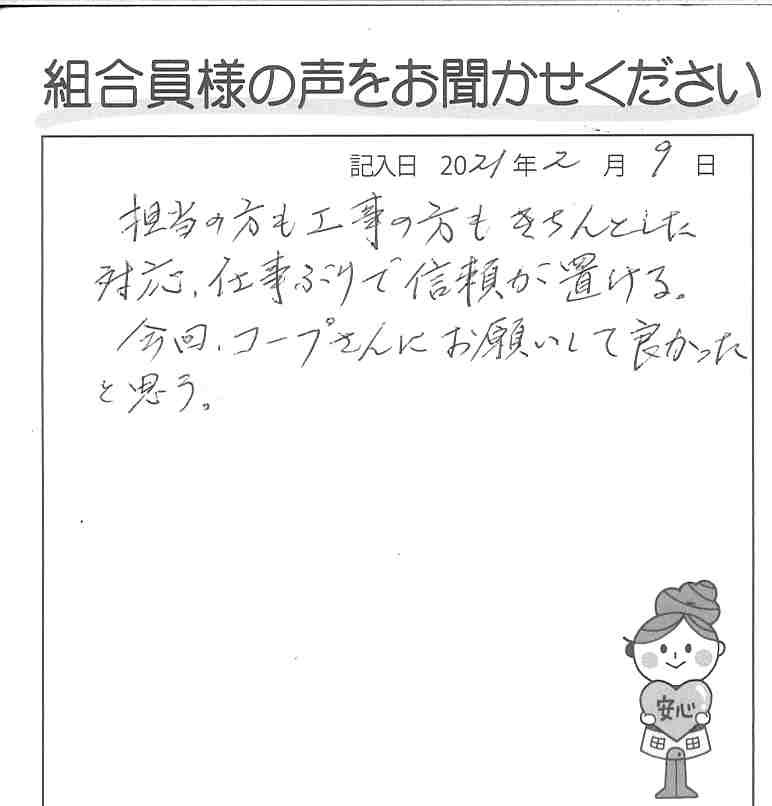 組合員様の声をお聞かせください
記入日 2021年2月9日
担当の方も工事の方もきちんとした
対応、仕事ぶりで信頼が置ける。
今回、コープさんにお願いして良かった
と思う。
安心